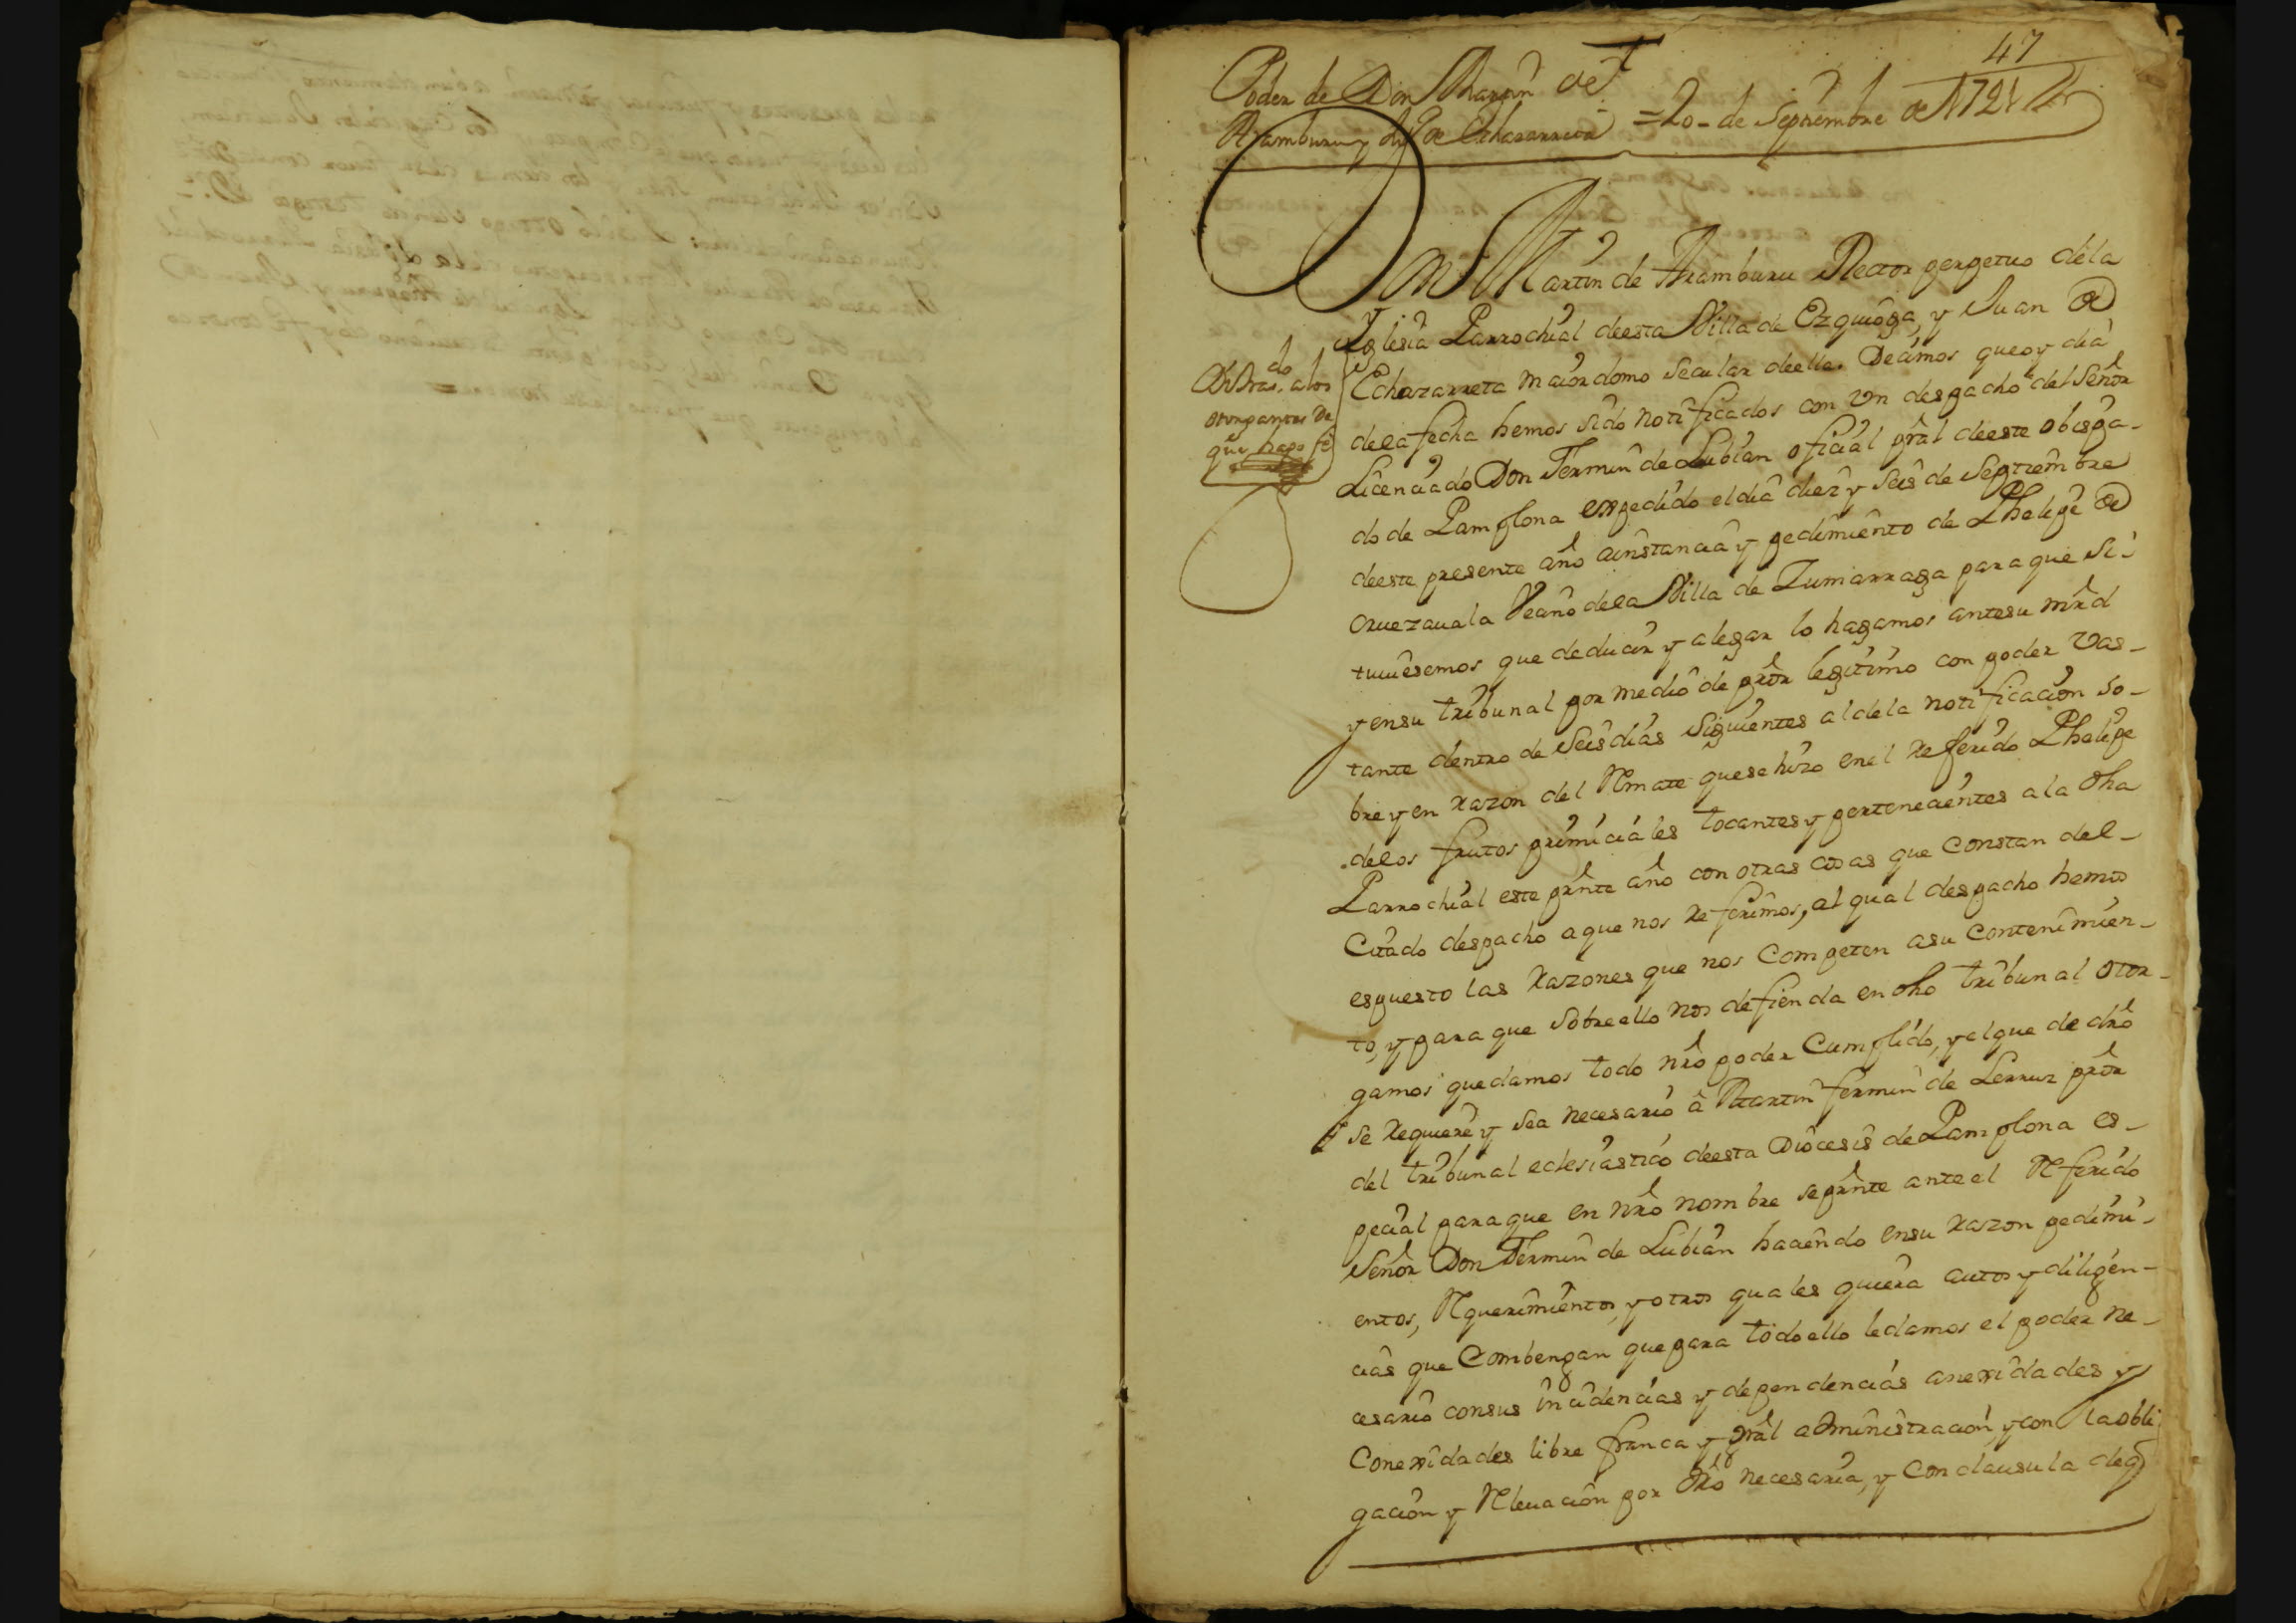 47
Poder de Don Martin de
Aramburu y Ju.o de Echazarreta = 20 - de Septiembre de 1721
Don Martin de Aramburu Rector perpetuo dela
Yglesia Parrochial deesta Villa de Ezquioga, y Juan de
Echazarreta maiordomo secular deella. Decimos que oy dia
dela fecha hemos sido notificados con vn despacho del señor
Licenciado Don Fermin de Lubian oficial prãl deeste obispa-
do de Pamplona expedido el dia diez y seis de Septiembre
deeste presente año ainstancia y pedimiento de Phelipe de
Oruezauala Vecino dela Villa de Zumarraga paraque si
tuuiesemos que deducir y alegar lo hagamos antesu mrd
y ensu tribunal por medio de prõr legitimo con poder vas-
tante dentro de seis dias siguientes aldela notificacion so-
bre y en razon del Remate quese hizo enel referido Phelipe
delos frutos primiciales tocantes y pertenecientes ala dha
Parrochial este prnte año con otras cosas que constan del-
citado despacho aque nos referimos, al qual despacho hemos
espuesto las razones que nos competen asu contenimien-
to, y para que sobreello nos defienda en dho tribunal otor-
gamos quedamos todo nro poder cumplido, y elque de dro
se requiere y sea necesario â Martin fermin de Lerruz prõr
del tribunal eclesiastico deesta Diocesis de Pamplona es-
pecial paraque en nro nombre seprnte ante el Referido
señor Don Fermin de Lubian haciendo ensu razon pedimi-
entos, Requerimientos, y otros quales quiera autos y diligen-
cias que combengan que para todo ello ledamos el poder ne-
cesario consus incidencias y dependencias anexidades y
conexidades libre franca y gral administracion y con la obli
gacion y Releuacion por dro necesaria, y con clausula deq
do
a los
otorgantes de
que hago fe